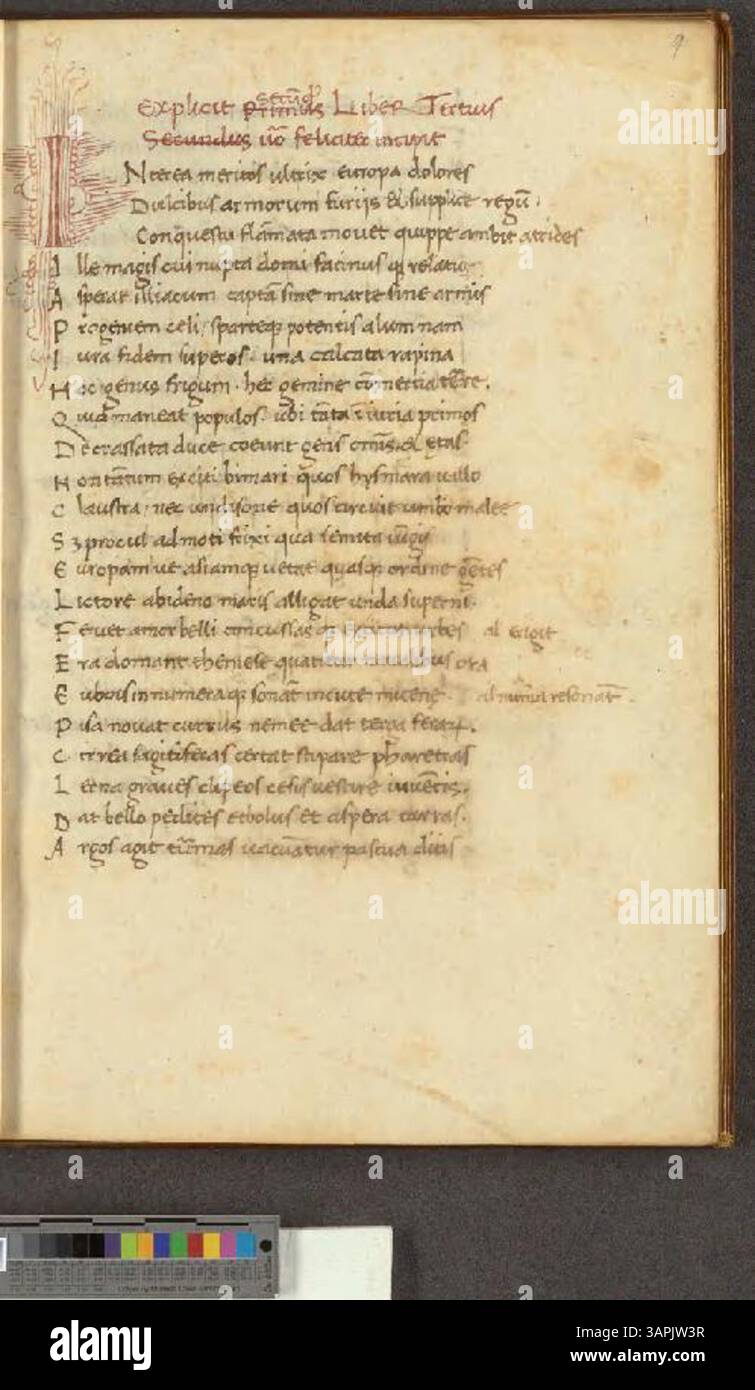 9
Explicit Primus Liber Tertius
Secundus ũo feliciter incipit
INterea meritos ultrix europa dolores
Dulcibus armorum furiis & supplice regũ.
Conquestu flãmata mouet quippe ambit atrides
Ille magis cui nupta domi facinusq relatu
Asperat Iliacum captã sine marte sine armis
Progeniem celi, sparteq potentis alumnam
Iura fidem superos. una calcata rapina
Hoc genus frigum. hec gemine cõmertia terre.
Quid maneat populos. ubi tãta iniuria primos
Degrassata duces coeunt gens omnis & etas.
Non tãtum exciti bimari quos hysmara uallo
Claustra. nec undisone quos circuit umbo malee
Sz procul admoti frixi qua semita
Europam ue asiamq uetat quasq ordine gẽtes
Lictore abideno maris alligat unda superni.
Feruet amor belli concussas urbes al erigit
Era domant themese ora
Eubois innumeraq sonãt incute micene. resonãt.
Pisa nouat currus nemee dat terga ferarum.
Cirrea sagitiferas certat stipare pharetras
Lerna graues clipeos cesis uestire iuuencis.
Dat bello pedites etholus et aspera turras.
Argos agit turmas uacuãtur pascua ditis
alamy
Image ID: 3APJW3R
www.alamy.com